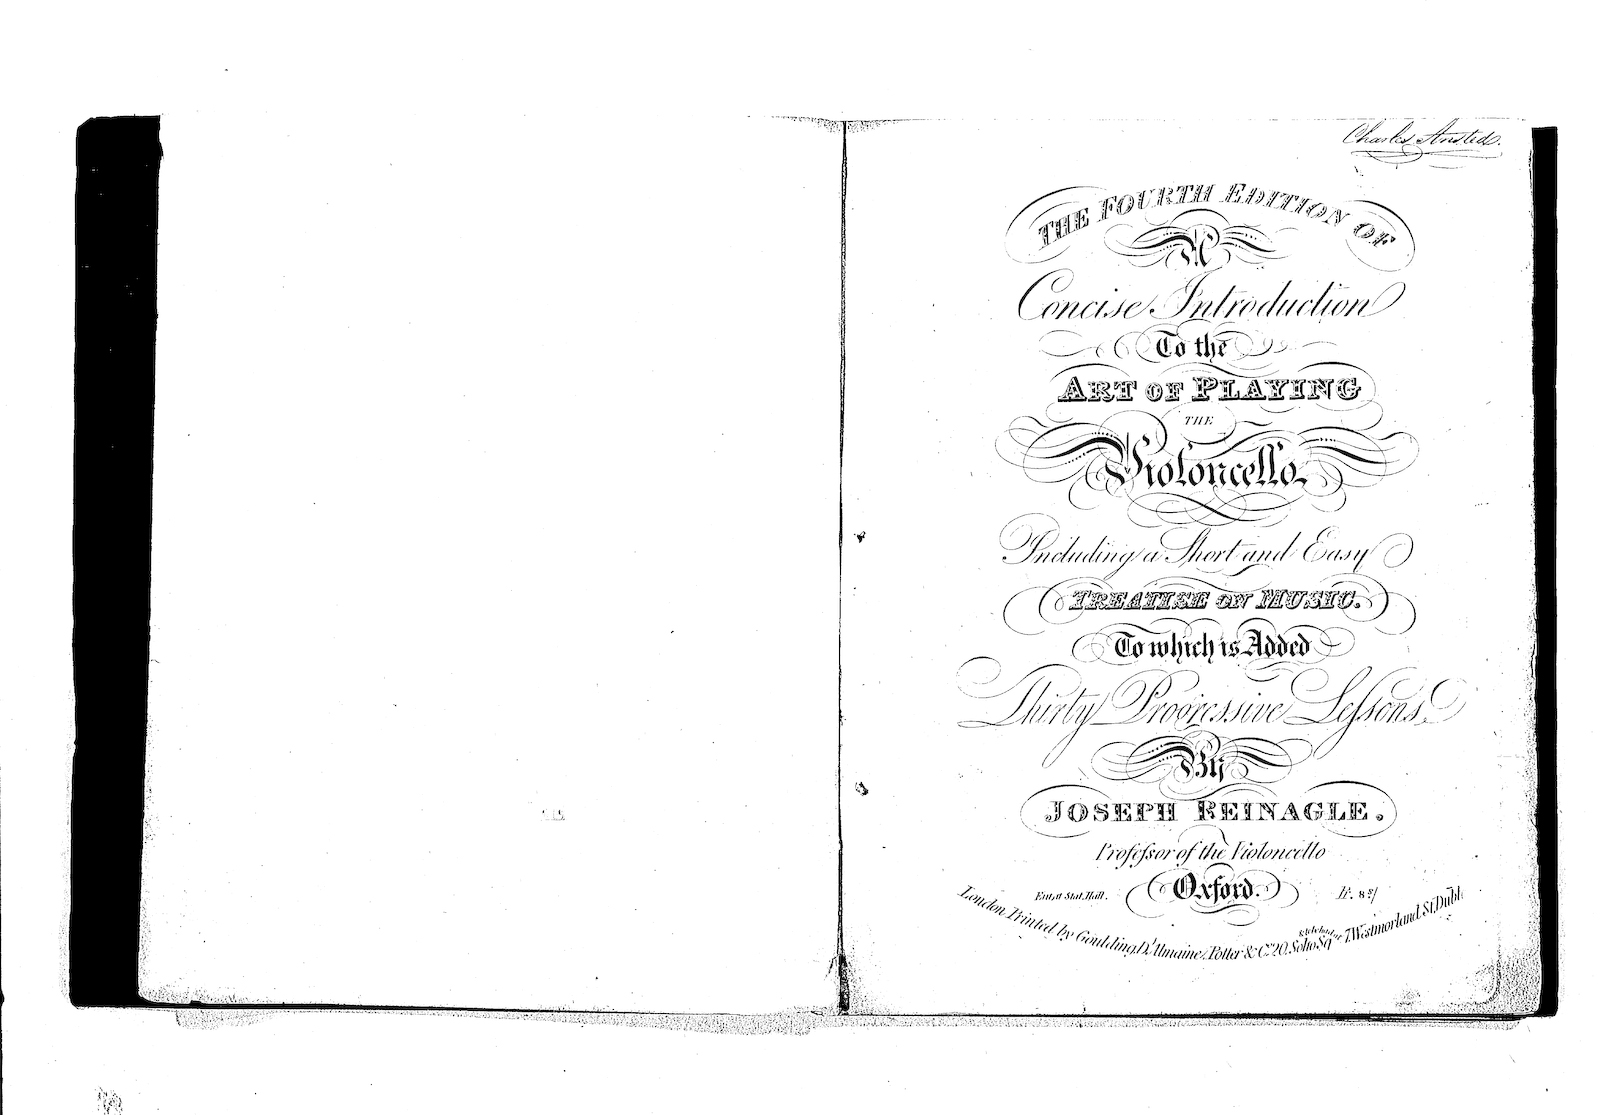 Charles Ansted.
THE FOURTH EDITION OF
A
Concise Introduction
To the
ART OF PLAYING
THE
Violoncello.
Including a Short and Easy
TREATISE ON MUSIC.
To which is Added
Thirty Progressive Leſsons.
By
JOSEPH REINAGLE.
Profeſsor of the Violoncello
Oxford.
Ent.at Stat.Hall. Pr. 8s/
London Printed by Goulding, D'Almaine, Potter & Co. 20. Soho Sq. & to be had at 7. Westmorland St. Dublin